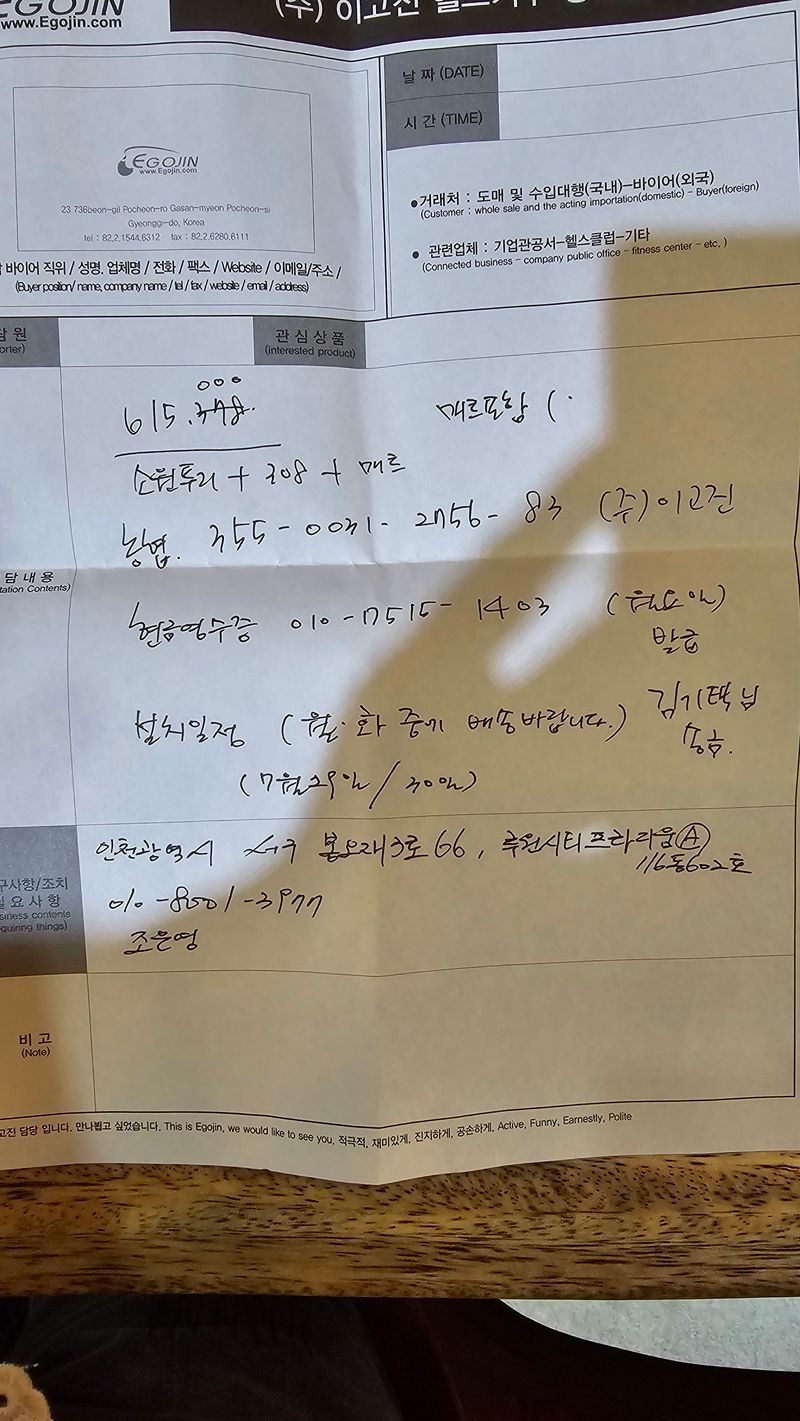 EGOJIN
www.Egojin.com
(주) 이고진
날 짜 (DATE)
시 간 (TIME)
EGOJIN
www.Egojin.com
23 736beon-gil Pocheon-ro Gasan-myeon Pocheon-si
Gyeonggi-do, Korea
tel : 82.2.1544.6312 fax : 82.2.6280.6111
바이어 직위 / 성명, 업체명 / 전화 / 팩스 / Website / 이메일/주소 /
(Buyer position/ name, company name / tel / fax / website / email / address)
●거래처 : 도매 및 수입대행(국내)-바이어(외국)
(Customer : whole sale and the acting importation(domestic) - Buyer(foreign)
● 관련업체 : 기업관공서-헬스클럽-기타
(Connected business - company public office - fitness center - etc. )
담 원
orter)
관 심 상 품
(interested product)
000
615.
매트포함 (
소원투리 + 308 + 매트
농협. 355-0031-2756-83 (주)이고진
담 내 용
tation Contents)
현금영수증 010-7515-1403 (월요일)
발급
설치일정 (월·화 중에 배송바랍니다.) 김기택님
송금.
(7월29일/30일)
구사항/조치
필 요 사 항
siness contents
quiring things)
인천광역시 서구 봉오재3로 66, 루원시티프라디움Ⓐ
116동602호
010-8001-3977
조은영
비 고
(Note)
고진 담당 입니다. 만나뵙고 싶었습니다. This is Egojin, we would like to see you. 적극적, 재미있게, 진지하게, 공손하게, Active, Funny, Earnestly, Polite